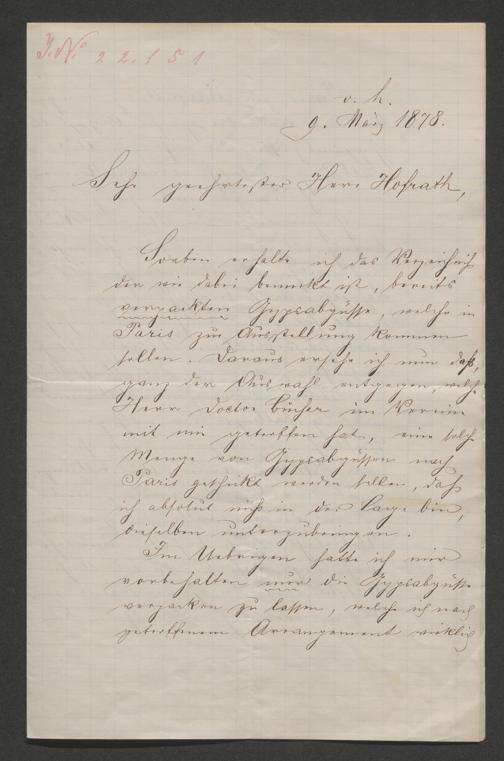 J. No 22.151
v. h.
9. März 1878.
Sehr geehrtester Herr Hofrath,
Soeben erhalte ich das Verzeichniß
der wie dabei bemerkt ist, bereits
verpackten Gypsabgüsse, welche in
Paris zur Ausstellung kommen
sollen. Daraus ersehe ich nun daß,
ganz der Auswahl entgegen, welche
Herr Doctor Bucher im Verein
mit mir getroffen hat, eine solche
Menge von Gypsabgüssen nach
Paris geschickt werden sollen, daß
ich absolut nicht in der Lage bin,
dieselben unterzubringen.
Im Uebrigen hatte ich mir
vorbehalten nur die Gypsabgüsse
verpacken zu lassen, welche ich nach
getroffenem Arrangement wirklich